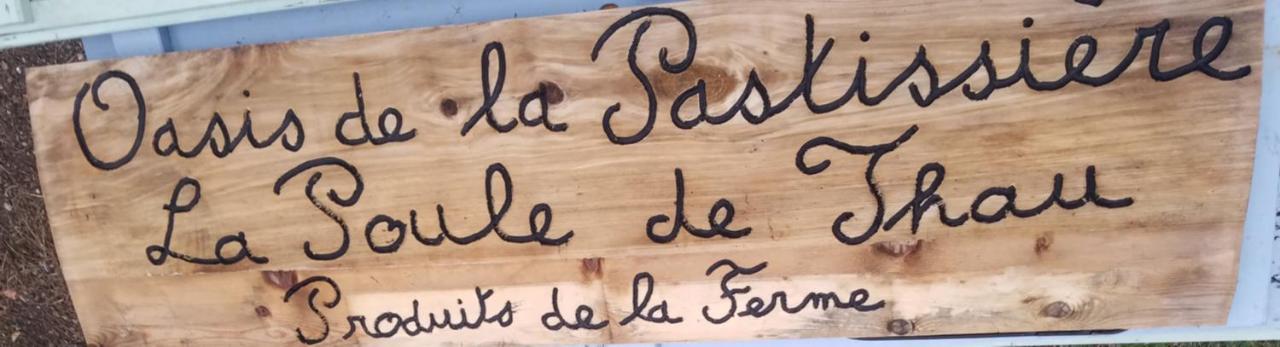 Oasis de la Pastissière
La Poule de Thau
Produits de la Ferme